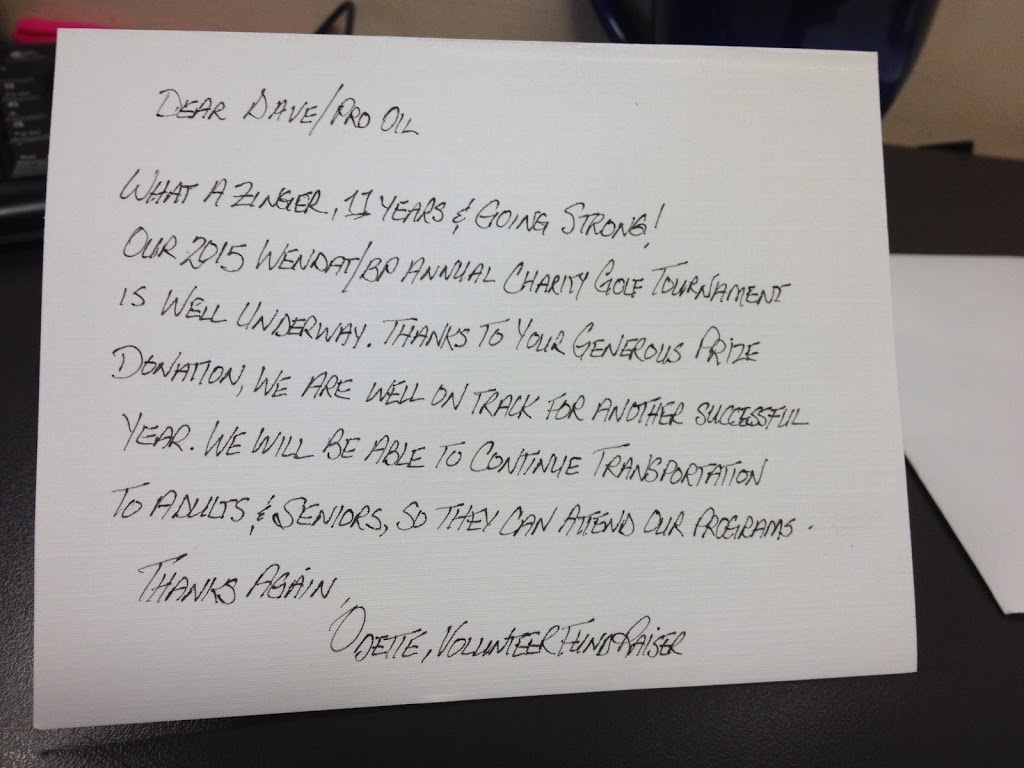 DEAR DAVE/PRO OIL
WHAT A ZINGER, 11 YEARS & GOING STRONG!
OUR 2015 WENDAT/BP ANNUAL CHARITY GOLF TOURNAMENT
IS WELL UNDERWAY. THANKS TO YOUR GENEROUS PRIZE
DONATION, WE ARE WELL ON TRACK FOR ANOTHER SUCCESSFUL
YEAR. WE WILL BE ABLE TO CONTINUE TRANSPORTATION
TO ADULTS & SENIORS, SO THEY CAN ATTEND OUR PROGRAMS.
THANKS AGAIN,
ODETTE, VOLUNTEER FUND RAISER